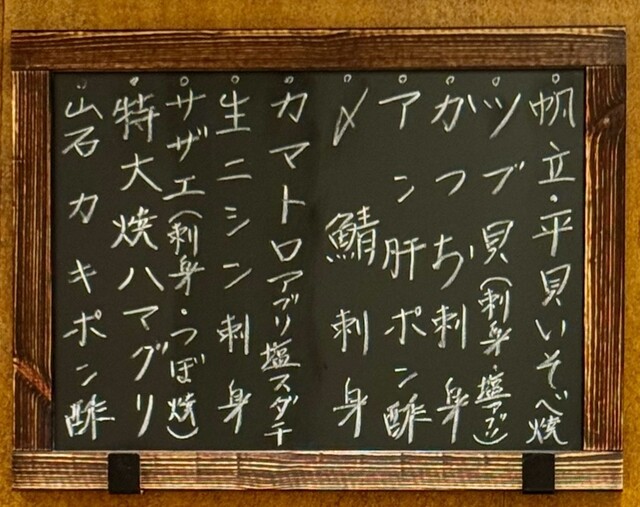 ○帆立・平貝いそべ焼
○ツブ貝(刺身・塩アブリ)
○かつお刺身
○アン肝ポン酢
○〆鯖刺身
○カマトロアブリ塩スダチ
○生ニシン刺身
○サザエ(刺身・つぼ焼)
○特大焼ハマグリ
○岩カキポン酢